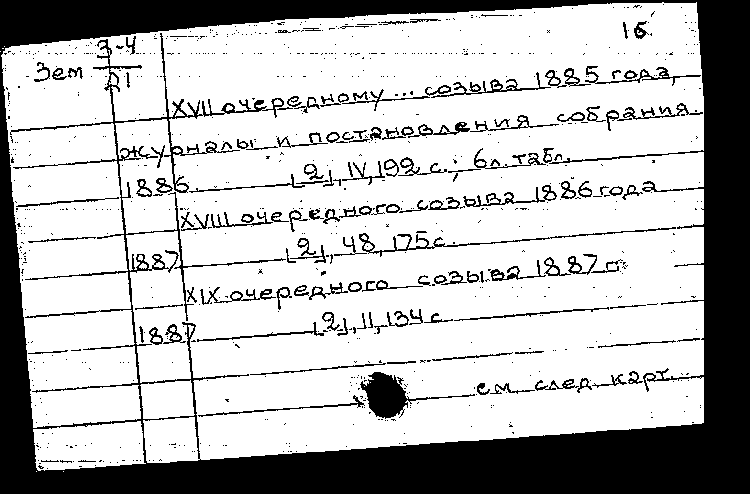 16
Зем 3-4
Д1
XVII очередному ... созыва 1885 года,
журналы и постановления собрания.
1886. [2], IV, 192 с.; 6 л. табл.
XVIII очередного созыва 1886 года
1887 [2], 48, 175 с.
XIX очередного созыва 1887 г.
1887 [2], II, 134 с
см след. карт.